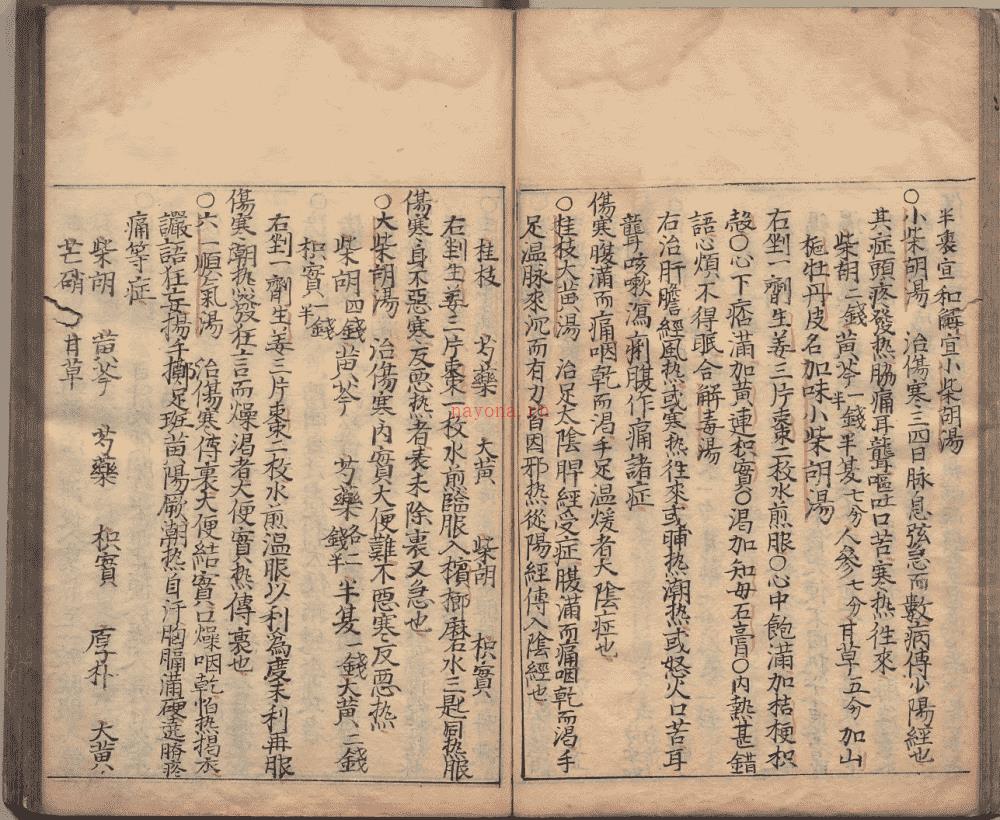 半裏宜和解宜小柴胡湯
○小柴胡湯 治傷寒三四日脉息弦急而數病傳少陽經也
其症頭疼發热脇痛耳聾嘔吐口苦寒热往來
柴胡二錢黄芩一錢半半夏七分人參七分甘草五分加山
梔牡丹皮名加味小柴胡湯
右剉一劑生姜三片棗二枚水煎服○心中飽滿加桔梗枳
殼○心下痞滿加黄連枳實○渴加知母石膏○内熱甚錯
語心煩不得眠合解毒湯
右治肝膽經風热或寒热往來或晡热潮热或怒火口苦耳
聾咳嗽瀉痢腹作痛諸症
傷寒腹滿而痛咽乾而渴手足温煖者大陰症也
○桂枝大黄湯 治足太陰脾經受症腹滿而痛咽乾而渴手
足温脉來沉而有力皆因邪热從陽經傳入陰經也
桂枝 芍藥 大黄 柴胡 枳實
右剉生姜三片棗一枚水煎臨服入檳榔磨水三匙同热服
傷寒身不惡寒反惡热者表未除裏又急也
○大柴胡湯 治傷寒内實大便難不惡寒反惡热
柴胡四錢黄芩 芍藥各二錢半半夏一錢大黄二錢
枳實一錢半
右剉一劑生姜三片棗一枚水煎温服以利為度未利再服
傷寒潮热發狂言而燥渴者大便實热傳裏也
○六一順气湯 治傷寒傳裏大便結實口燥咽乾怕热揭衣
讝語狂妄揚手擲足班黄陽厥潮热自汗胸膈滿硬遶臍疼
痛等症
柴胡 黄芩 芍藥 枳實 厚朴 大黄
芒硝 甘草
nayona.cn